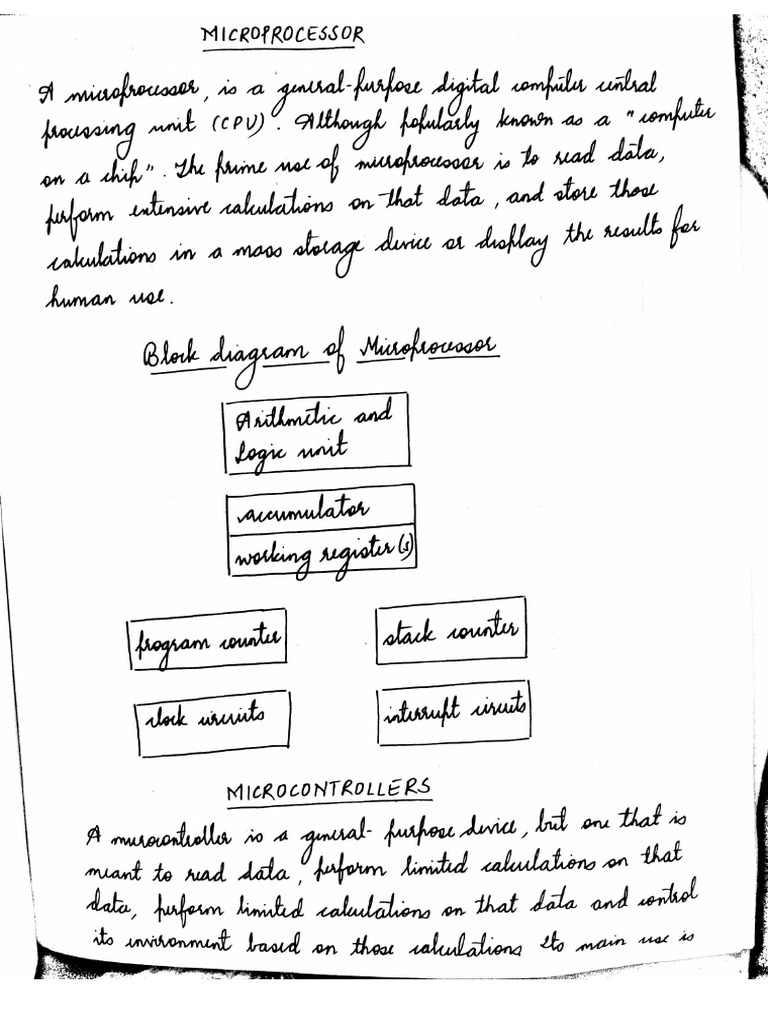 MICROPROCESSOR
A microprocessor, is a general-purpose digital computer central
processing unit (CPU). Although popularly known as a "computer
on a chip". The prime use of microprocessor is to read data,
perform extensive calculations on that data, and store those
calculations in a mass storage device or display the results for
human use.
Block diagram of Microprocessor
Arithmetic and
Logic unit
accumulator
working register(s)
program counter
stack counter
clock circuits
interrupt circuits
MICROCONTROLLERS
A microcontroller is a general-purpose device, but one that is
meant to read data, perform limited calculations on that
data, perform limited calculations on that data and control
its environment based on those calculations Its main use is